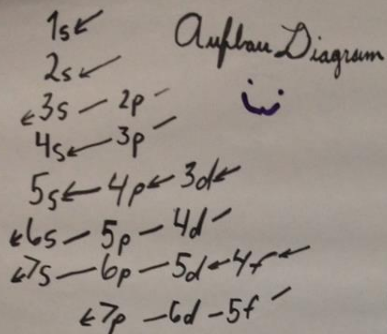 Aufbau Diagram
1s
2s
3s 2p
4s 3p
5s 4p 3d
6s 5p 4d
7s 6p 5d 4f
7p 6d 5f